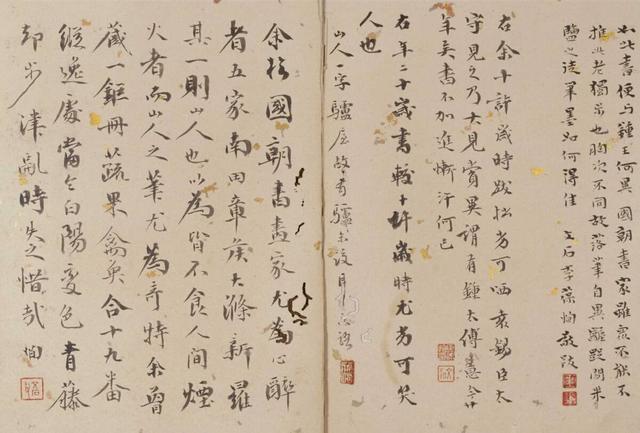 如此書便与鍾王何異國朝書家雖衆不能不
推此老獨步也胸次不同故落筆自異離跂閒米
鹽之徒筆墨如何得佳 文石李葆恂敬跋
在余十許歲時跋拙劣可哂袁錫臣太
守見之乃大見賞異謂有鍾太傅意今廿
年矣書不加進慚汗何已
右年二十歲書較十許歲時尤劣可笑
人也
山人一字驢屋故有驢
余於國朝書畫家尤為心醉
者五家南田章侯大滌新羅
其一則山人也以為皆不食人間煙
火者而山人之筆尤為奇特余曾
藏一鉅冊蔬果禽魚合十九番
縱逸處當令白陽變色青藤
却步津亂時失之惜哉 恂